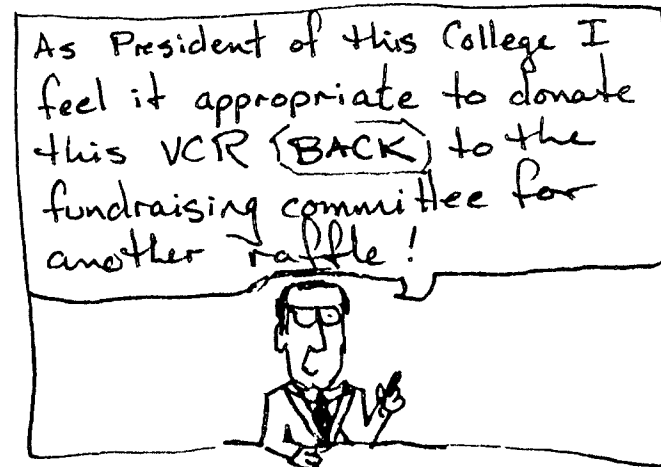 As President of this College I
feel it appropriate to donate
this VCR (BACK) to the
fundraising committee for
another raffle!